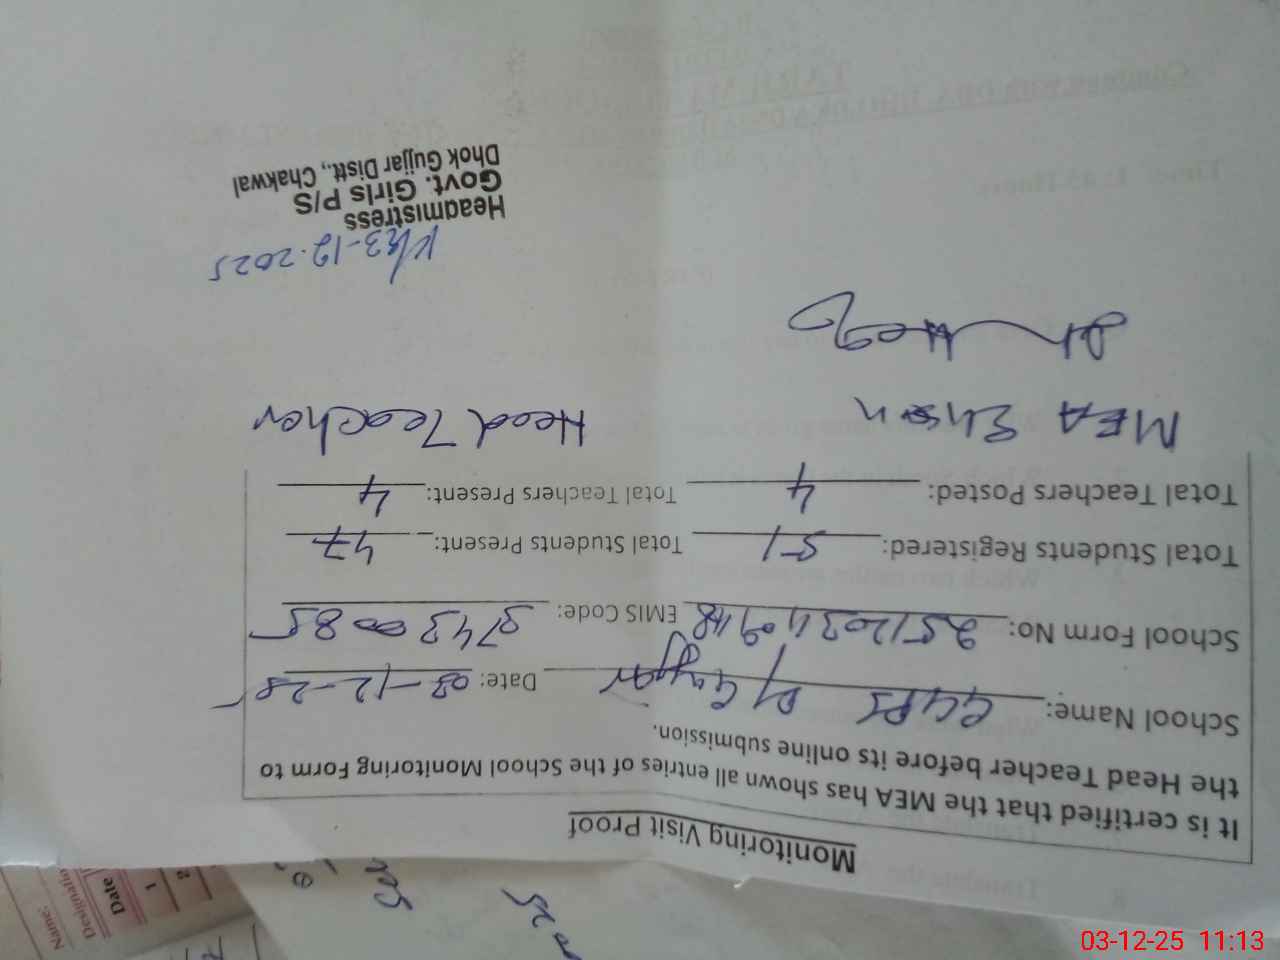 Monitoring Visit Proof
It is certified that the MEA has shown all entries of the School Monitoring Form to
the Head Teacher before its online submission.
School Name: GGPS Dj Gujjar Date: 03-12-25
School Form No: EMIS Code: 37430085
Total Students Registered: 51 Total Students Present: 47
Total Teachers Posted: 4 Total Teachers Present: 4
MEA Head Teacher
3-12-2025
Headmistress
Govt. Girls P/S
Dhok Gujjar Distt., Chakwal
Name:
Date
1
2
03-12-25 11:13